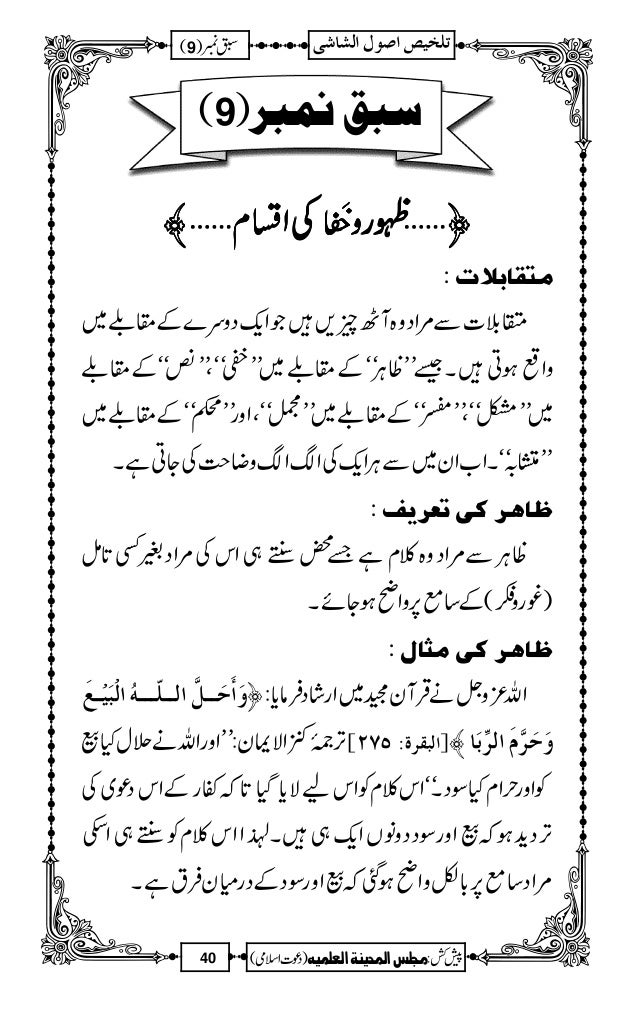 تلخیص اصول الشاشی
سبق نمبر (9)
سبق نمبر (9)
﴿......ظہور و خَفا کی اقسام......﴾
متقابلات :
متقابلات سے مراد وہ آٹھ چیزیں ہیں جو ایک دوسرے کے مقابلے میں
واقع ہوتی ہیں۔ جیسے ’’ظاہر‘‘ کے مقابلے میں ’’خفی‘‘، ’’نص‘‘ کے مقابلے
میں ’’مشکل‘‘، ’’مفسر‘‘ کے مقابلے میں ’’مجمل‘‘، اور ’’محکم‘‘ کے مقابلے میں
’’متشابہ‘‘۔ اب ان میں سے ہر ایک کی الگ الگ وضاحت کی جاتی ہے۔
ظاہر کی تعریف :
ظاہر سے مراد وہ کلام ہے جسے محض سنتے ہی اس کی مراد بغیر کسی تامل
(غور و فکر) کے سامع پر واضح ہو جائے۔
ظاہر کی مثال :
اللہ عزوجل نے قرآن مجید میں ارشاد فرمایا: ﴿وَأَحَلَّ اللّٰهُ الْبَيْعَ
وَحَرَّمَ الرِّبَا﴾[البقرة: ٢٧٥] ترجمۂ کنز الایمان: ’’اور اللہ نے حلال کیا بیع
کو اور حرام کیا سود۔‘‘ اس کلام کو اس لیے لایا گیا تاکہ کفار کے اس دعوی کی
تردید ہو کہ بیع اور سود دونوں ایک ہی ہیں۔ لہذا اس کلام کو سنتے ہی اسکی
مراد سامع پر بالکل واضح ہو گئی کہ بیع اور سود کے درمیان فرق ہے۔
پیش کش: مجلس المدینة العلمیه (دعوت اسلامی)
40